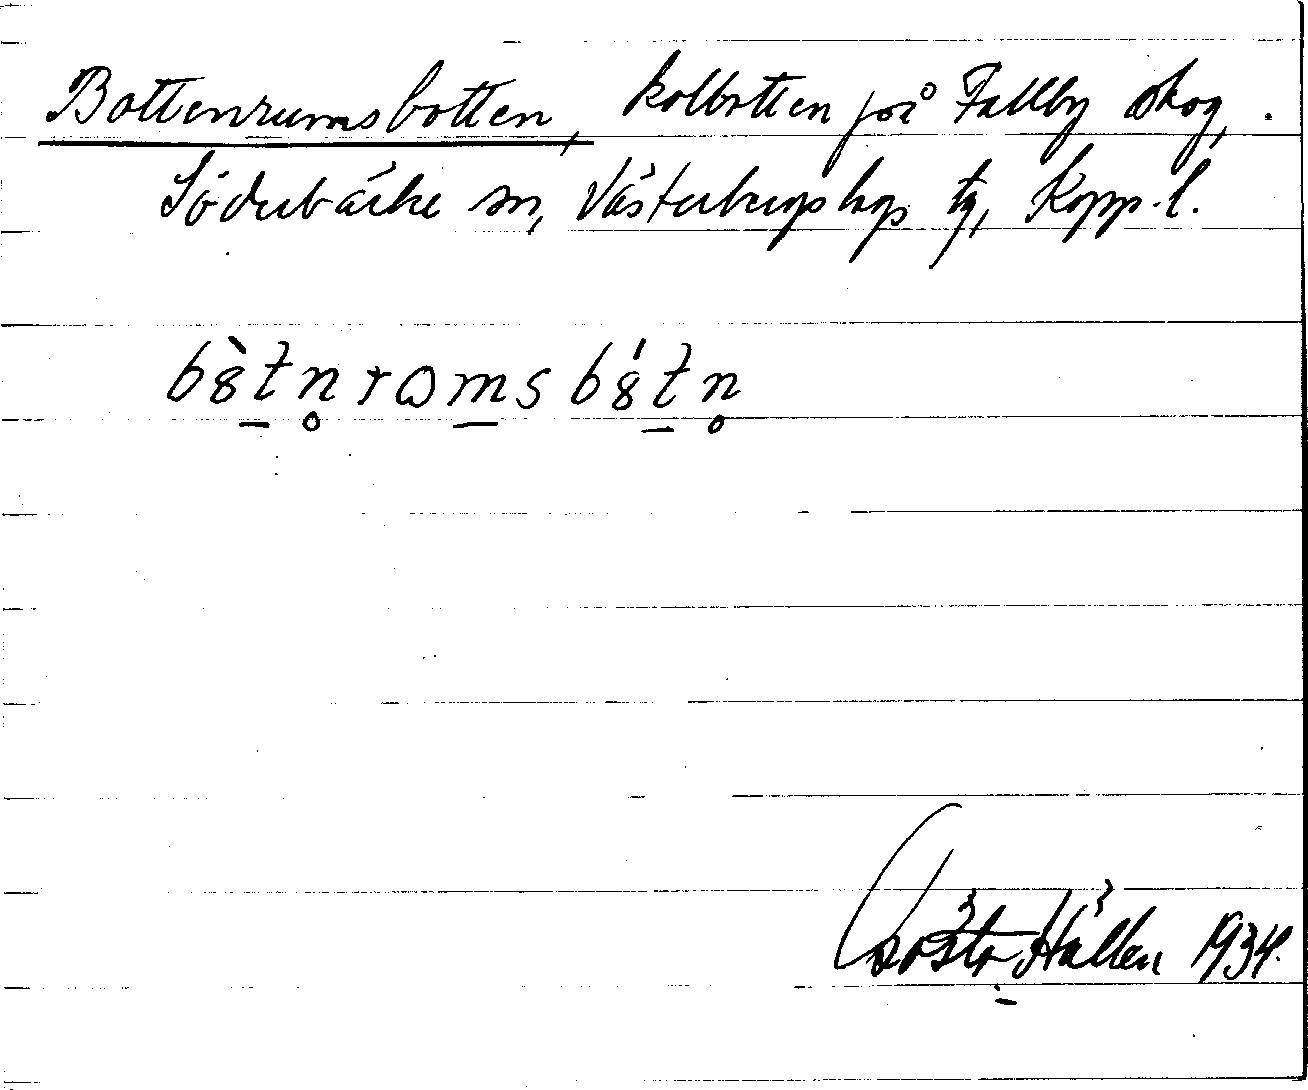 Bottenrumsbotten, kolbotten på Fallby skog,
Söderbärke sn, Västerbergslags tg, Kopp. l.
b8̀tn̥rωmsb8́tn̥
Gösta Hallén 1934.